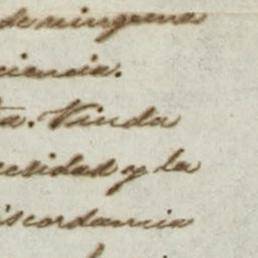 de ninguna
ciencia.
ta. Viuda
ecsidad y la
iscordancia